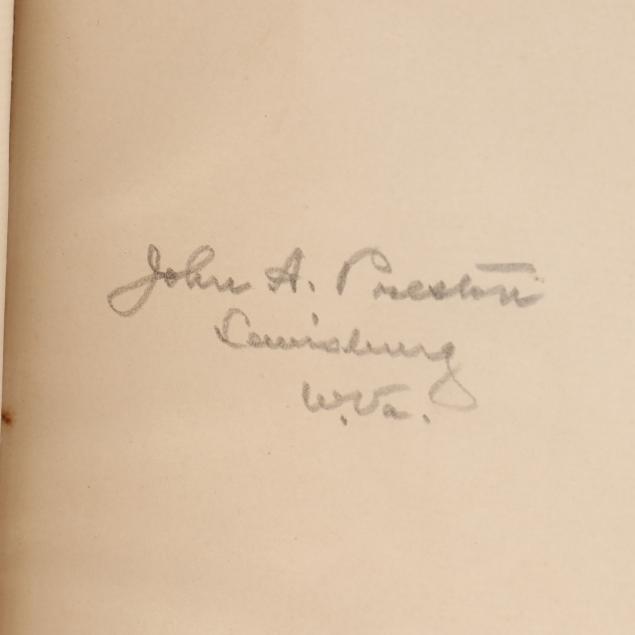 John A. Preston
Lewisburg
W. Va.